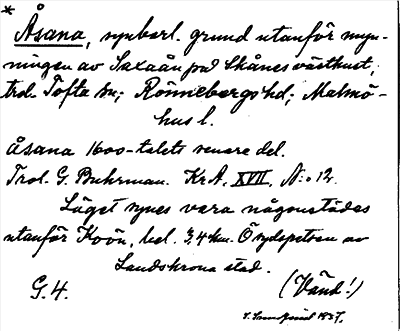 *
Åsana, synbarl. grund utanför myn-
ningen av Saxaån på Skånes västkust,
trol. Tofta sn; Rönnebergs hd; Malmö-
hus l.
Åsana 1600-talets senare del.
Trol. G. Buhrman. KrA. XVII, N:o 12.
Läget synes vara någonstädes
utanför Koön, bel. 3,4 km. Ö sydspetsen av
Landskrona stad.
G. 4. (Vänd!)
1937.